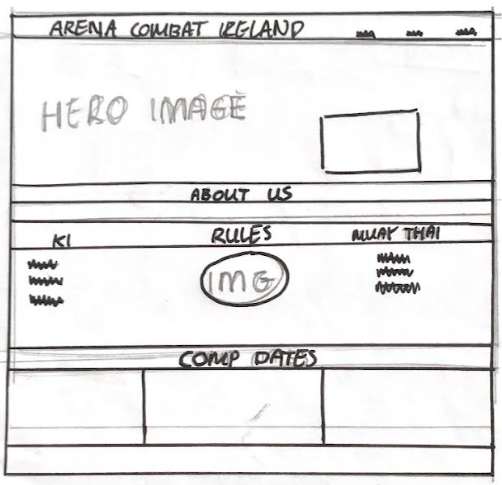 ARENA COMBAT IRELAND
HERO IMAGE
ABOUT US
K1 RULES MUAY THAI
IMG
COMP DATES